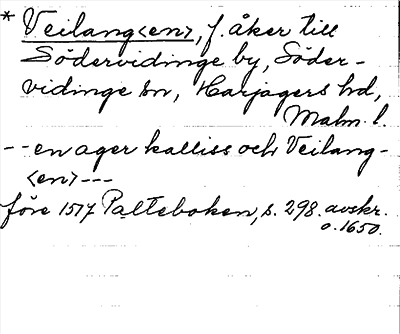 * Veilang<en>, f. åker till
Södervidinge by, Söder-
vidinge sn, Harjagers hd,
Malm. l.
-- en ager kalliss och Veilang-
<en> ---
före 1517 Palteboken, s. 298. avskr.
o. 1650.